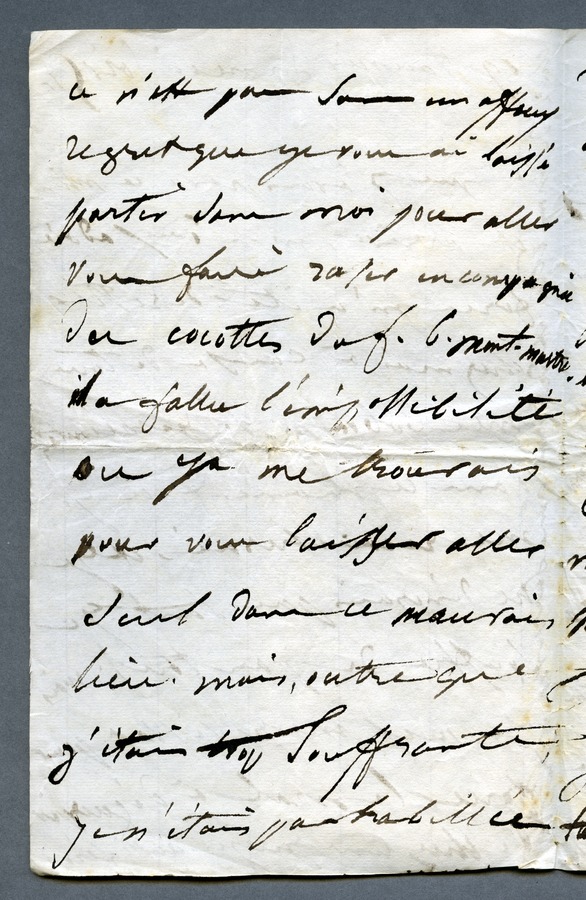 ce n'est pas sans un affreux
regret que je vous ai laissé
partir sans moi pour aller
vous faire raser en compagnie
des cocottes du f. b. mont-martre,
il a fallu l'impossibilité
ou je me trouvais
pour vous laisser aller
seul dans ce mauvais
lieu. mais, outre que
j'étais trop souffrante,
je n'étais pas habillée